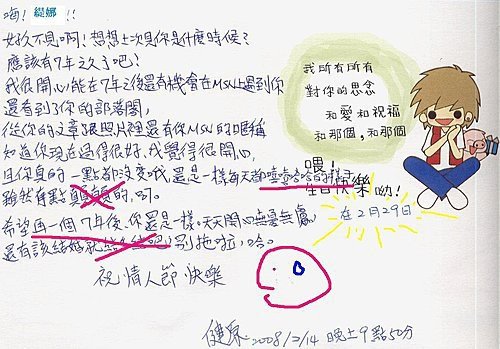 嗨! 緹娜 !!
好久不見啊!想想上次見你是什麼時候?
應該有7年之久了吧!
我很開心能在7年之後還有機會在MSN上遇到你
還看到了你的部落閣,
從你的文章跟照片裡還有你MSN的暱稱
知道你現在過得很好,我覺得很開心,
且你真的一點都沒變,你還是一樣每天都嘻嘻哈哈的樣子
雖然有點顛顛的,呵。
希望再一個7年後,你還是一樣。天天開心無憂無慮。
還有該結婚就結婚吧!別拖啦,哈。
祝 情人節 快樂
健康 2008/2/14 晚上9點50分
我所有所有
對你的思念
和愛和祝福
和那個,和那個
喂!
生日快樂呦!
在2月29日